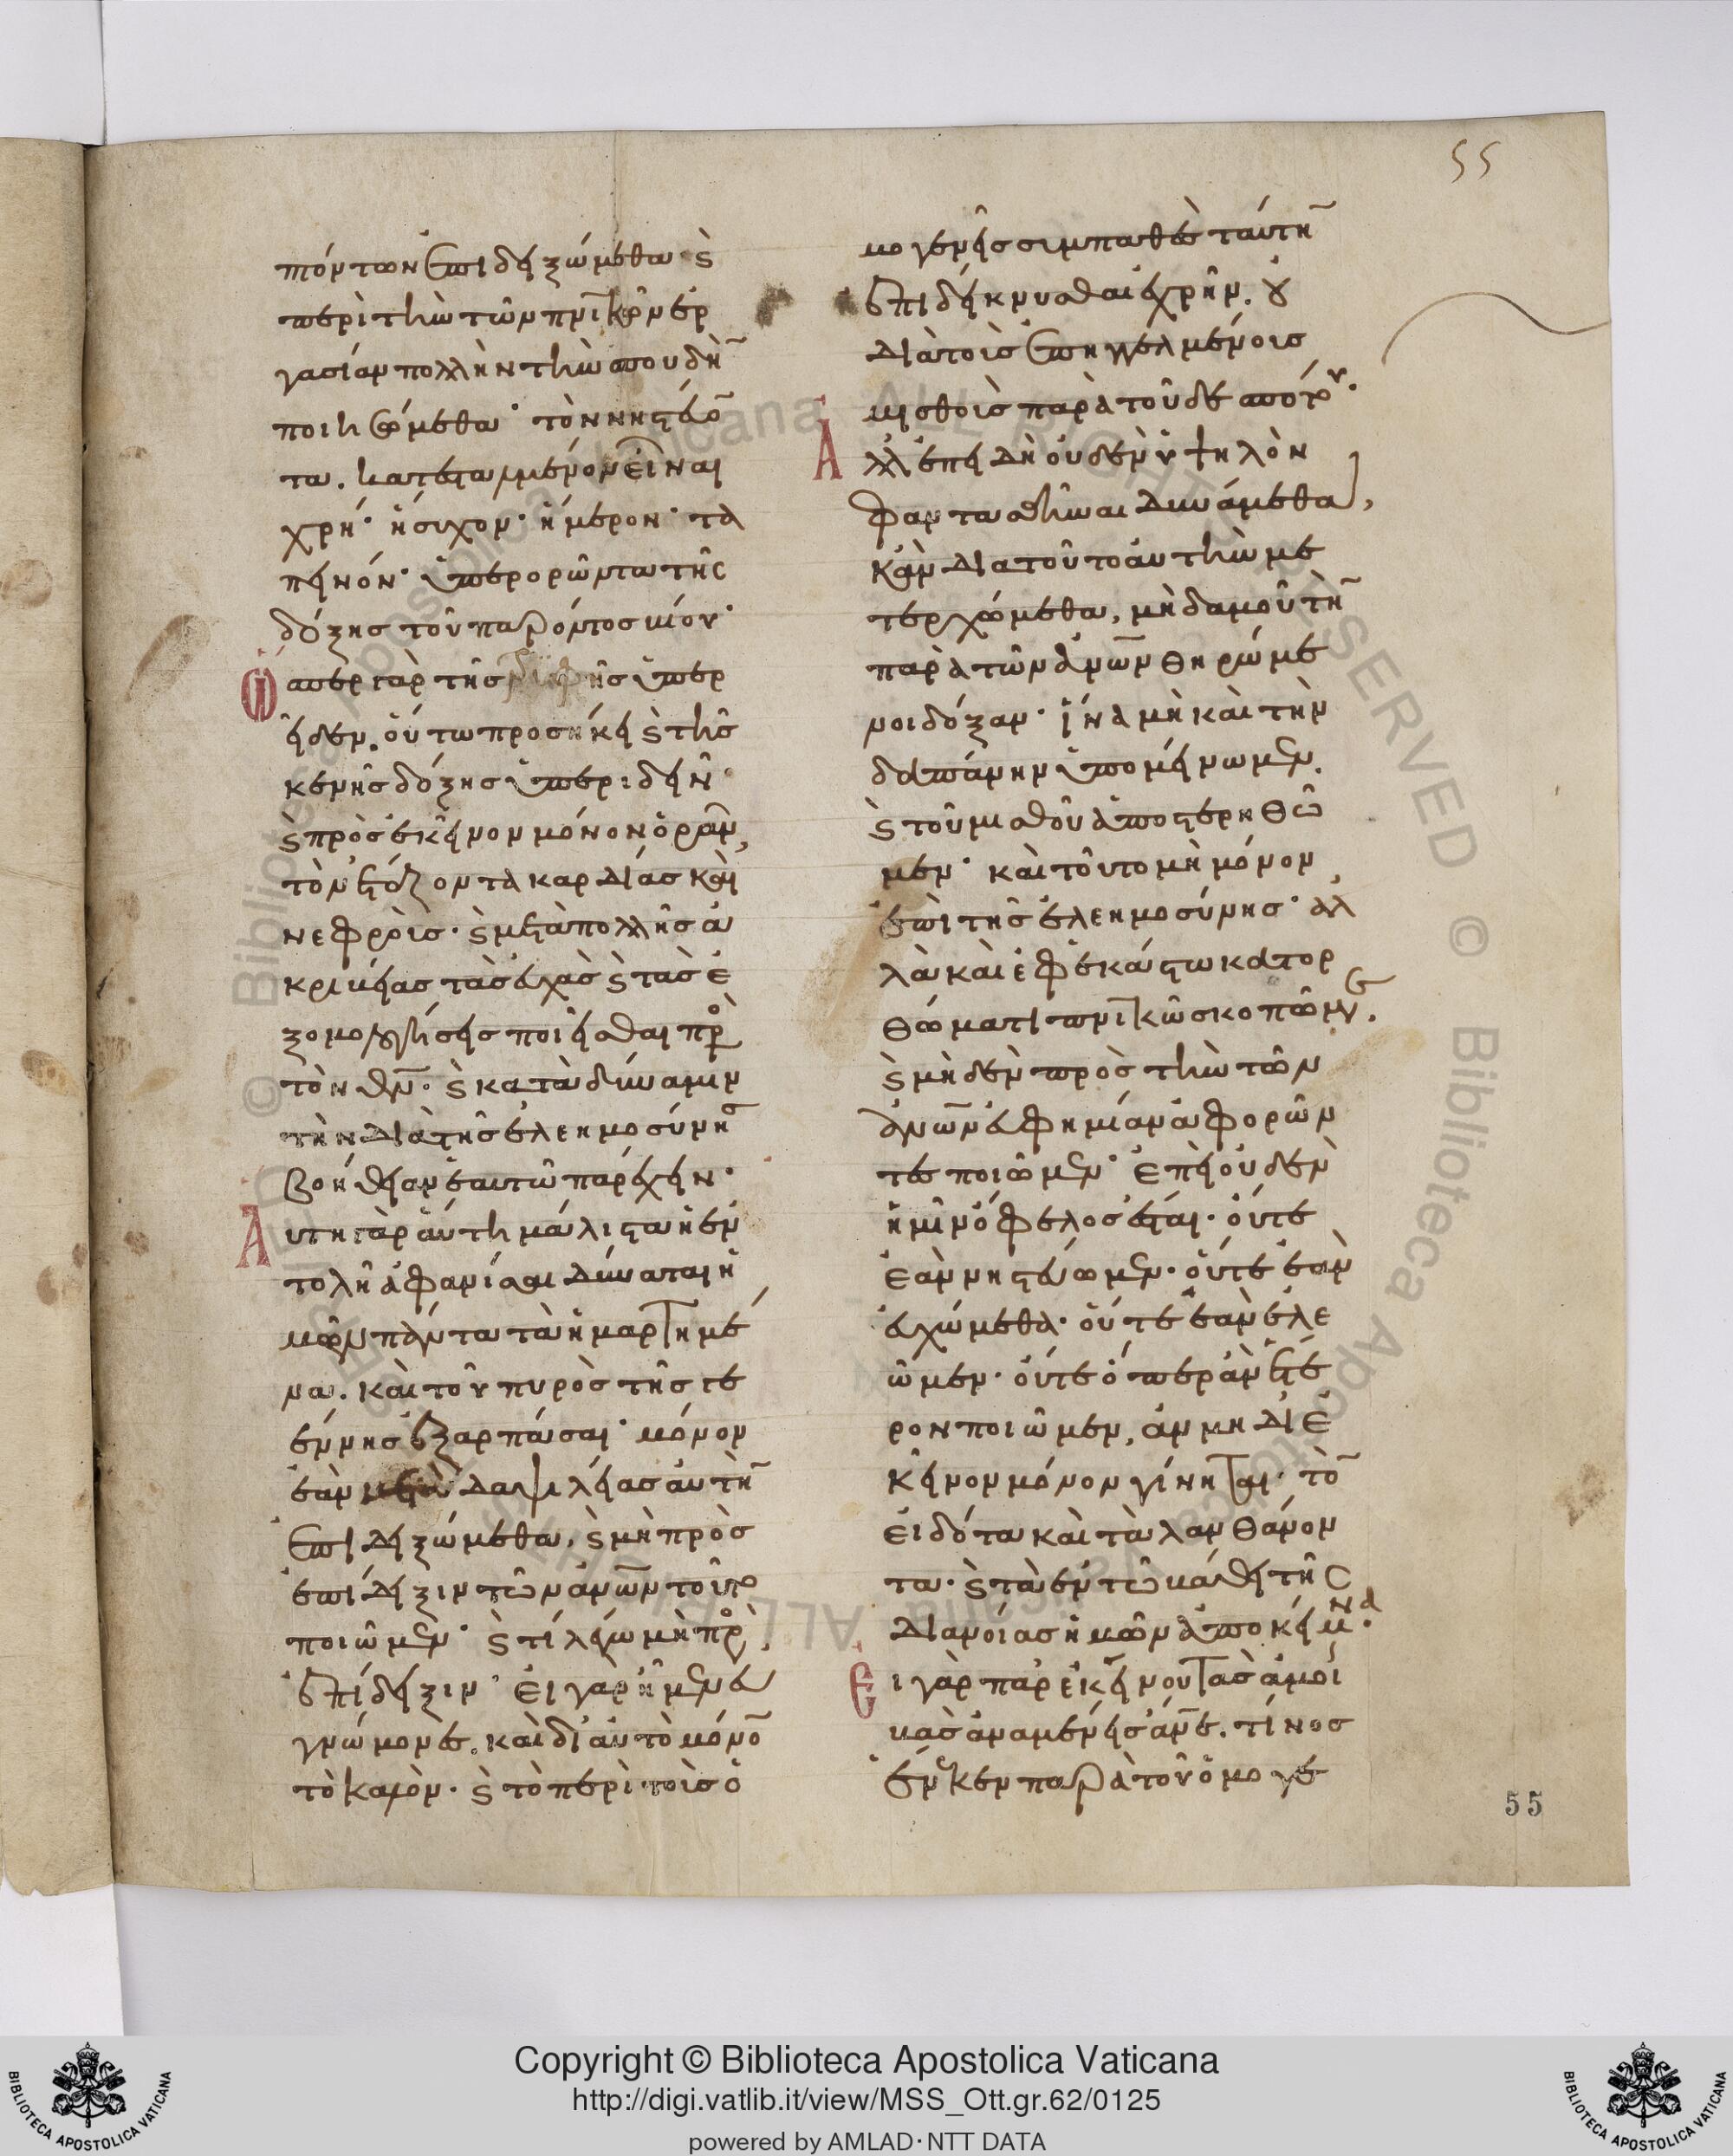 55
πόντων ἐπιδειξώμεθα· καὶ
περὶ τὴν τῶν πνικῶν ἐρ
γασίαν πολλὴν τὴν σπουδὴν
ποιησώμεθα· τὸν νηστεύον
τα. κατεσταλμένον εἶναι
χρή· ἥσυχον· ἥμερον· τα
πεινόν· ὑπερορῶντα τῆς
δόξης τοῦ παρόντος βίου·
Ὥσπερ γὰρ τῆς ψυχῆς ὑπερ
εῖδεν. οὕτω προσήκει καὶ τῆς
κενῆς δόξης ὑπεριδεῖν·
καὶ πρὸς ἐκεῖνον μόνον ὁρᾶν,
τὸν ἐτάζοντα καρδίας καὶ
νεφρούς· καὶ μετὰ πολλῆς ἀ
κριβείας τὰς εὐχὰς καὶ τὰς ἐ
ξομολογήσεις ποιεῖσθαι πρὸς
τὸν θν· καὶ κατὰ δύναμιν
τὴν διὰ τῆς ἐλεημοσύνης
βοήθειαν ἑαυτῶ παρέχειν·
Αὕτη γὰρ αὕτη μάλιστα ἡ ἐν
τολὴ ἀφανίσαι δύναται ἡ
μῶν πάντα τὰ ἡμαρτημέ
να. καὶ τοῦ πυρὸς τῆς γε
έννης ἐξαρπάσαι· μόνον
ἐὰν μετὰ δαψιλείας αὐτὴν
ἐπιδειξώμεθα, καὶ μὴ πρὸς
ἐπίδειξιν τῶν ἀνων τοῦτο
ποιῶμεν· καὶ τί λέγω μὴ πρὸς
ἐπίδειξιν· εἰ γὰρ ἦμεν εὐ
γνώμονες. καὶ δι' αὐτὸ μόνον
τὸ καλὸν· καὶ τὸ περὶ τοὺς ὁ
μογενεῖς συμπαθὲς ταύτην
ἐπιδείκνυσθαι ἐχρῆν. οὐ
διὰ τοὺς ἐπηγγελμένοις
μισθοὺς παρὰ τοῦ δεσπότου·
Ἀλλ' ἐπειδὴ οὐδὲν ὑψηλὸν
φαντασθῆναι δυνάμεθα,
κἂν διὰ τοῦτο αὐτὴν με
τερχώμεθα, μηδαμοῦ τὴν
παρὰ τῶν ἀνων θηρώμε
νοι δόξαν· ἵνα μὴ καὶ τὴν
δαπάνην ὑπομείνωμεν.
καὶ τοῦ μισθοῦ ἀποστερηθῶ
μεν· καὶ τοῦτο μὴ μόνον
ἐπὶ τῆς ἐλεημοσύνης· ἀλ
λὰ καὶ ἐφ' ἑκάστω κατορ
θώματι πνικῶ σκοπῶμεν.
καὶ μηδὲν πρὸς τὴν τῶν
ἀνων εὐφημίαν ἀφορῶν
τες ποιῶμεν· ἐπεὶ οὐδὲν
ἡμῖν ὄφελος ἔσται· οὔτε
ἐὰν νηστεύωμεν· οὔτε ἐὰν
εὐχώμεθα· οὔτε ἐὰν ἐλε
ῶμεν· οὔτε ὅπερ ἂν ἕτε
ρον ποιῶμεν, ἂν μὴ δι' ἐ
κεῖνον μόνον γίνηται· τὸν
εἰδότα καὶ τὰ λανθάνον
τα· καὶ τὰ ἐν τῶ βάθει τῆς
διανοίας ἡμῶν ἀποκείμενα·
Εἰ γὰρ παρ' ἐκείνου τὰς ἀμοι
βὰς ἀναμένεις ἄνε. τίνος
ἕνεκεν παρὰ τοῦ ὁμογε
55
Copyright © Biblioteca Apostolica Vaticana
http://digi.vatlib.it/view/MSS_Ott.gr.62/0125
powered by AMLAD·NTT DATA